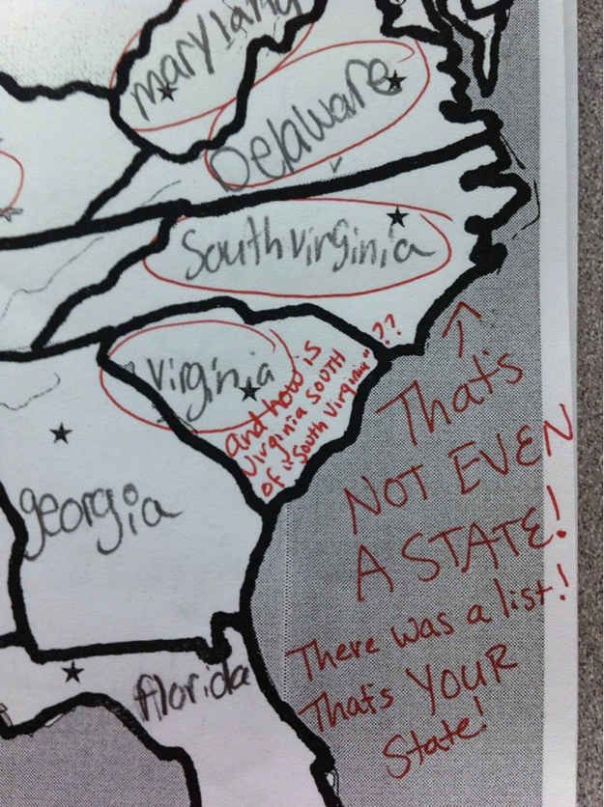 maryland
Delaware
South virginia
virginia
and how is
Virginia SOUTH
of "South Virginia"??
georgia
florida
That's
NOT EVEN
A STATE!
There was a list!
That's YOUR
State!